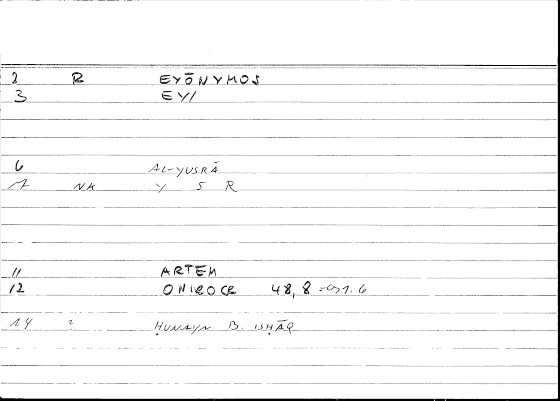 2 R EYŌNYMOS
3 EY/
6 AL-YUSRĀ
7 NA Y S R
11 ARTEM
12 ONIROCR 48,8 =
14 2 ḤUNAYN B. ISḤĀQ